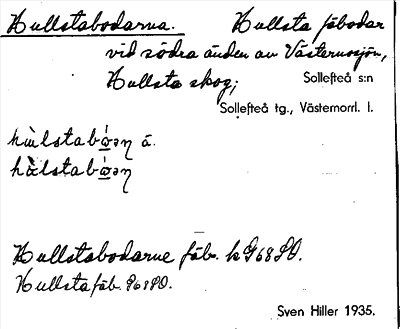 Hullstabodarna. Hullsta fäbodar
vid södra änden av Västernosjön,
Hullsta skog; Sollefteå s:n
Sollefteå tg., Västernorrl. l.
Hullstabodarne fäb. k G68SO.
Hullsta fäb. G68SO.
Sven Hiller 1935.